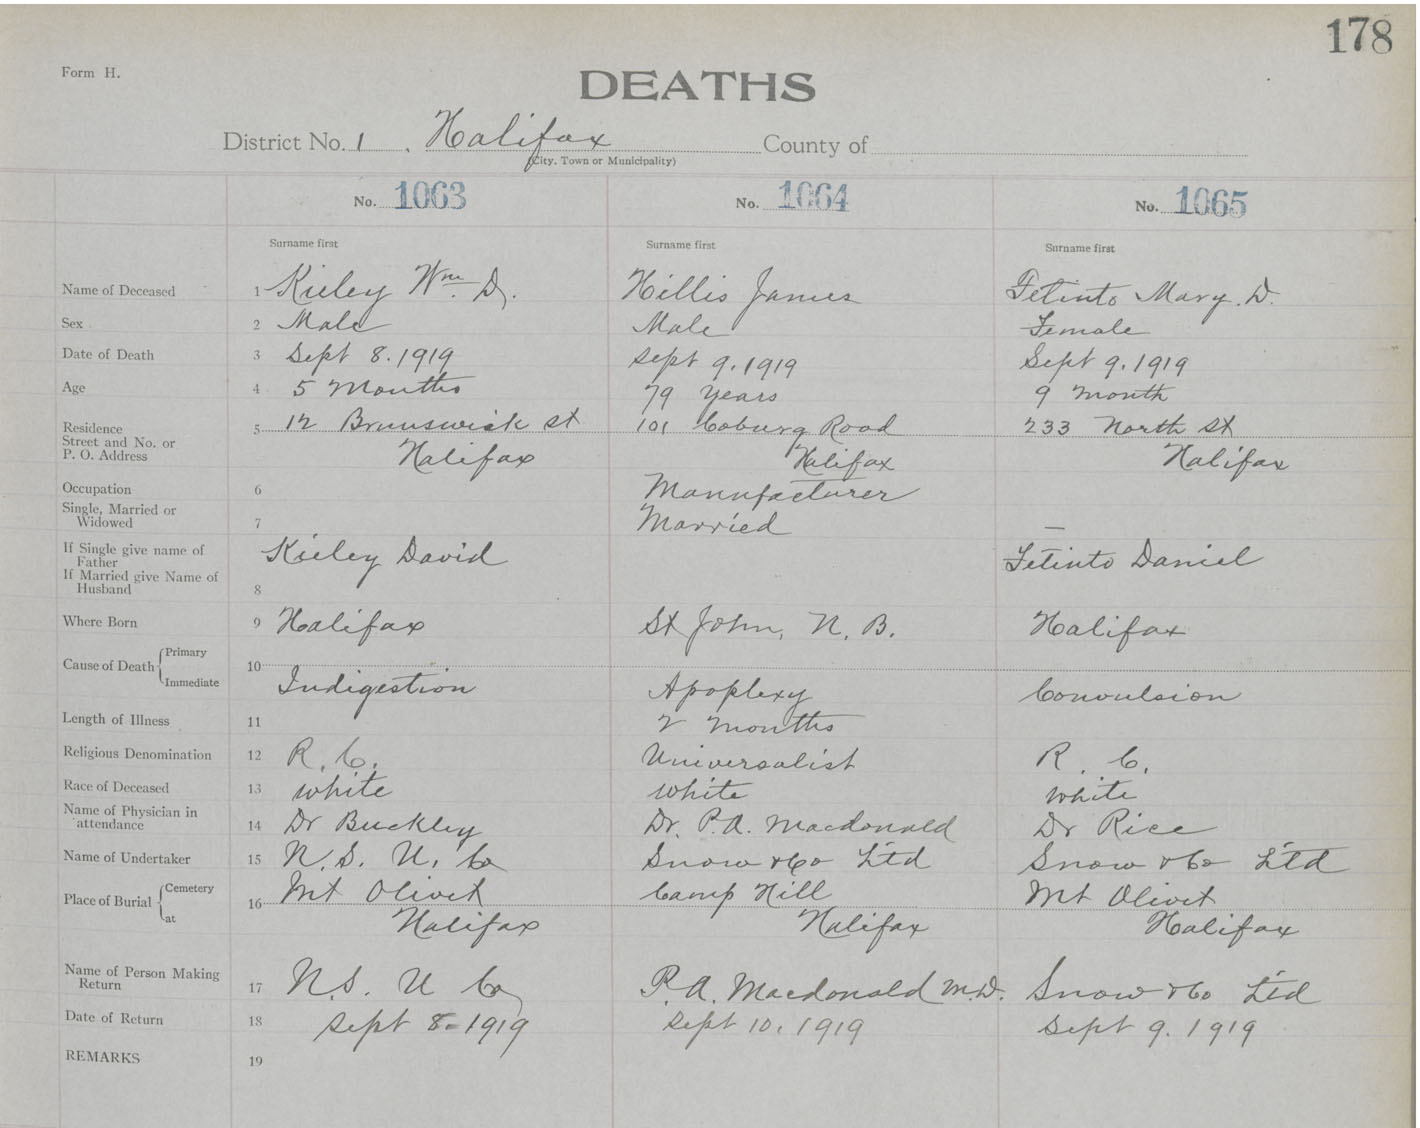 178
Form H.
DEATHS
District No. 1. Halifax County of
(City, Town or Municipality)
No. 1063 No. 1064 No. 1065
Surname first Surname first Surname first
Name of Deceased 1 Kieley Wm. D. Hillis James Tetinto Mary. D.
Sex 2 Male Male Female
Date of Death 3 Sept 8. 1919 Sept 9. 1919 Sept 9. 1919
Age 4 5 Months 79 Years 9 month
Residence
Street and No. or 5 12 Brunswick St 101 Coburg Road 233 North St
P. O. Address Halifax Halifax Halifax
Occupation 6 Manufacturer
Single, Married or
Widowed 7 Married —
If Single give name of Kieley David Tetinto Daniel
Father
If Married give Name of
Husband 8
Where Born 9 Halifax St John, N. B. Halifax
Primary
Cause of Death 10
Immediate Indigestion Apoplexy Convulsion
Length of Illness 11 2 Months
Religious Denomination 12 R. C. Universalist R. C.
Race of Deceased 13 white white white
Name of Physician in
attendance 14 Dr Buckley Dr. P. A. Macdonald Dr Rice
Name of Undertaker 15 N. S. U. Co Snow & Co Ltd Snow & Co Ltd
Cemetery Mt Olivet Camp Hill Mt Olivet
Place of Burial 16
at Halifax Halifax Halifax
Name of Person Making
Return 17 N. S. U Co P. A. Macdonald M.D. Snow & Co Ltd
Date of Return 18 Sept 8 - 1919 Sept 10. 1919 Sept 9. 1919
REMARKS 19